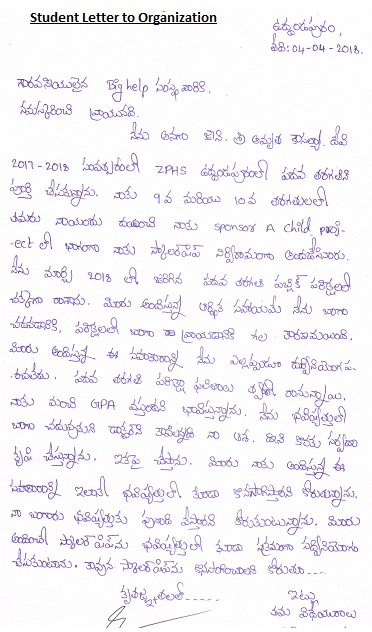 Student Letter to Organization
ఉద్దండపురం,
తేది: 04-04-2018.
గౌరవనీయులైన Big help సంస్థ వారికి
నమస్కరించి వ్రాయునది.
నేను శ్రీ అమృత కౌసల్యా దేవి
2017-2018 సంవత్సరంలో ZPHS ఉద్దండపురంలో పదవ తరగతిని
పూర్తి చేసుకున్నాను. నాకు 9వ మరియు 10వ తరగతులలో
తమరు నాయందు ఉంచి నాకు sponsor A child proj-
ect లో భాగంగా నాకు స్కాలర్‌షిప్ నిర్విరామంగా అందజేసినారు.
నేను మార్చి 2018 లో జరిగిన పదవ తరగతి పబ్లిక్ పరీక్షలలో
చక్కగా రాశాను. మీరు అందిస్తున్న ఆర్థిక సహాయమే నేను బాగా
చదవడానికి, పరీక్షలలో బాగా వ్రాయడానికి గల కారణమయింది.
మీరు అందిస్తున్న ఈ సహకారాన్ని నేను ఎల్లప్పుడూ దుర్వినియోగప-
రచలేదు. పదవ తరగతి పరీక్షా ఫలితాలు త్వరలో రానున్నాయి.
నాకు మంచి GPA వస్తుందని భావిస్తున్నాను. నేను భవిష్యత్తులో
బాగా చదువుకుని డాక్టర్‌ని కావాలన్నది నా ఆశ. దీని కొరకు సర్వదా
కృషి చేస్తున్నాను. ఇకపై చేస్తాను. మీరు నాకు అందిస్తున్న ఈ
సహకారాన్ని ఇలానే భవిష్యత్తులో కూడా కొనసాగిస్తారని కోరుతున్నాను.
నా బంగారు భవిష్యత్తుకు పునాది వేస్తారని కోరుకుంటున్నాను. మీరు
అందించే స్కాలర్‌షిప్‌ను భవిష్యత్తులో కూడా సక్రమంగా సద్వినియోగం
చేసుకుంటాను. కావున స్కాలర్‌షిప్‌ను కొనసాగించాలని కోరుతూ......
కృతజ్ఞతలతో......
ఇట్లు
తమ విధేయురాలు